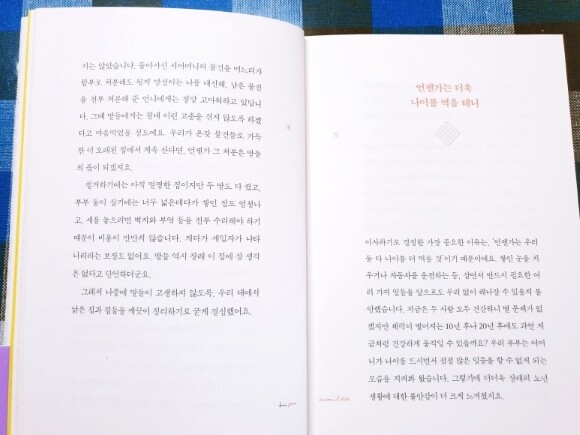 지는 않았습니다. 돌아가신 시어머니의 물건을 며느리가
함부로 처분해도 될지 망설이는 나를 대신해, 남은 물건
을 전부 처분해 준 언니에게는 정말 고마워하고 있답니
다. 그때 딸들에게는 절대 이런 고충을 겪지 않도록 하겠
다고 마음먹었을 정도예요. 우리가 온갖 물건들로 가득
찬 이 오래된 집에서 계속 산다면, 언젠가 그 처분은 딸들
의 몫이 되겠지요.
철거하기에는 아직 멀쩡한 집이지만 두 딸도 다 컸고,
부부 둘이 살기에는 너무 넓은데다가 쌓인 짐도 엄청나
고, 세를 놓으려면 벽지와 부엌 등을 전부 수리해야 하기
때문에 비용이 만만치 않습니다. 게다가 세입자가 나타
나리라는 보장도 없어요. 딸들 역시 장래 이 집에 살 생각
은 없다고 단언하더군요.
그래서 나중에 딸들이 고생하지 않도록, 우리 대에서
낡은 집과 짐들을 깨끗이 정리하기로 굳게 결심했어요.
언젠가는 더욱
나이를 먹을 테니
이사하기로 결정한 가장 중요한 이유는, '언젠가는 우리
둘 다 나이를 더 먹을 것'이기 때문이에요. 쌓인 눈을 치
우거나 자동차를 운전하는 등, 살면서 반드시 필요한 여
러 가지 일들을 앞으로도 무리 없이 해나갈 수 있을지 불
안했습니다. 지금은 두 사람 모두 건강하니 별 문제가 없
겠지만 체력이 떨어지는 10년 후나 20년 후에도 과연 지
금처럼 건강하게 움직일 수 있을까요? 우리 부부는 어머
니가 나이를 드시면서 점점 많은 일들을 할 수 없게 되는
모습을 지켜봐 왔습니다. 그렇기에 더더욱 장래의 노년
생활에 대한 불안감이 더 크게 느껴졌지요.